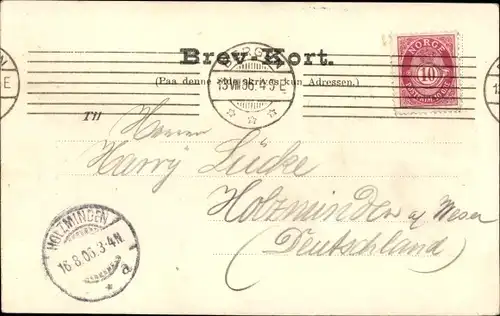 Brev-Kort.
(Paa denne Side skrives kun Adressen.)
BERGEN
NORGE
10
Til
Herrn
Harry Lücke
Holzminden a/ Weser
(Deutschland)
HOLZMINDEN
16.8.06.3-4N.
a